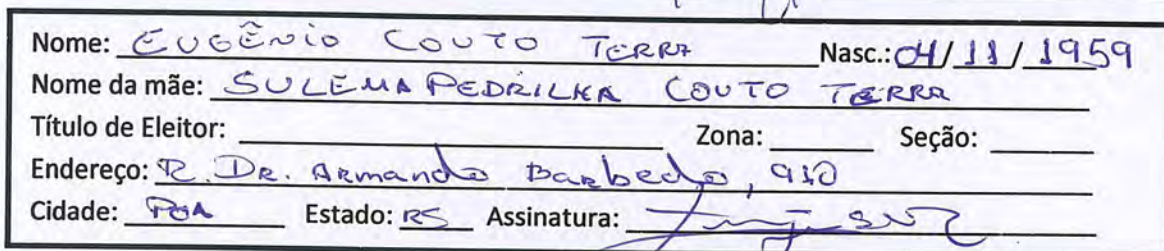 Nome: EUGÊNIO COUTO TERRA Nasc.: 04/11/1959
Nome da mãe: SULEMA PEDRILHA COUTO TERRA
Título de Eleitor: Zona: Seção:
Endereço: R. DR. ARMANDO BARBEDO, 910
Cidade: POA Estado: RS Assinatura: